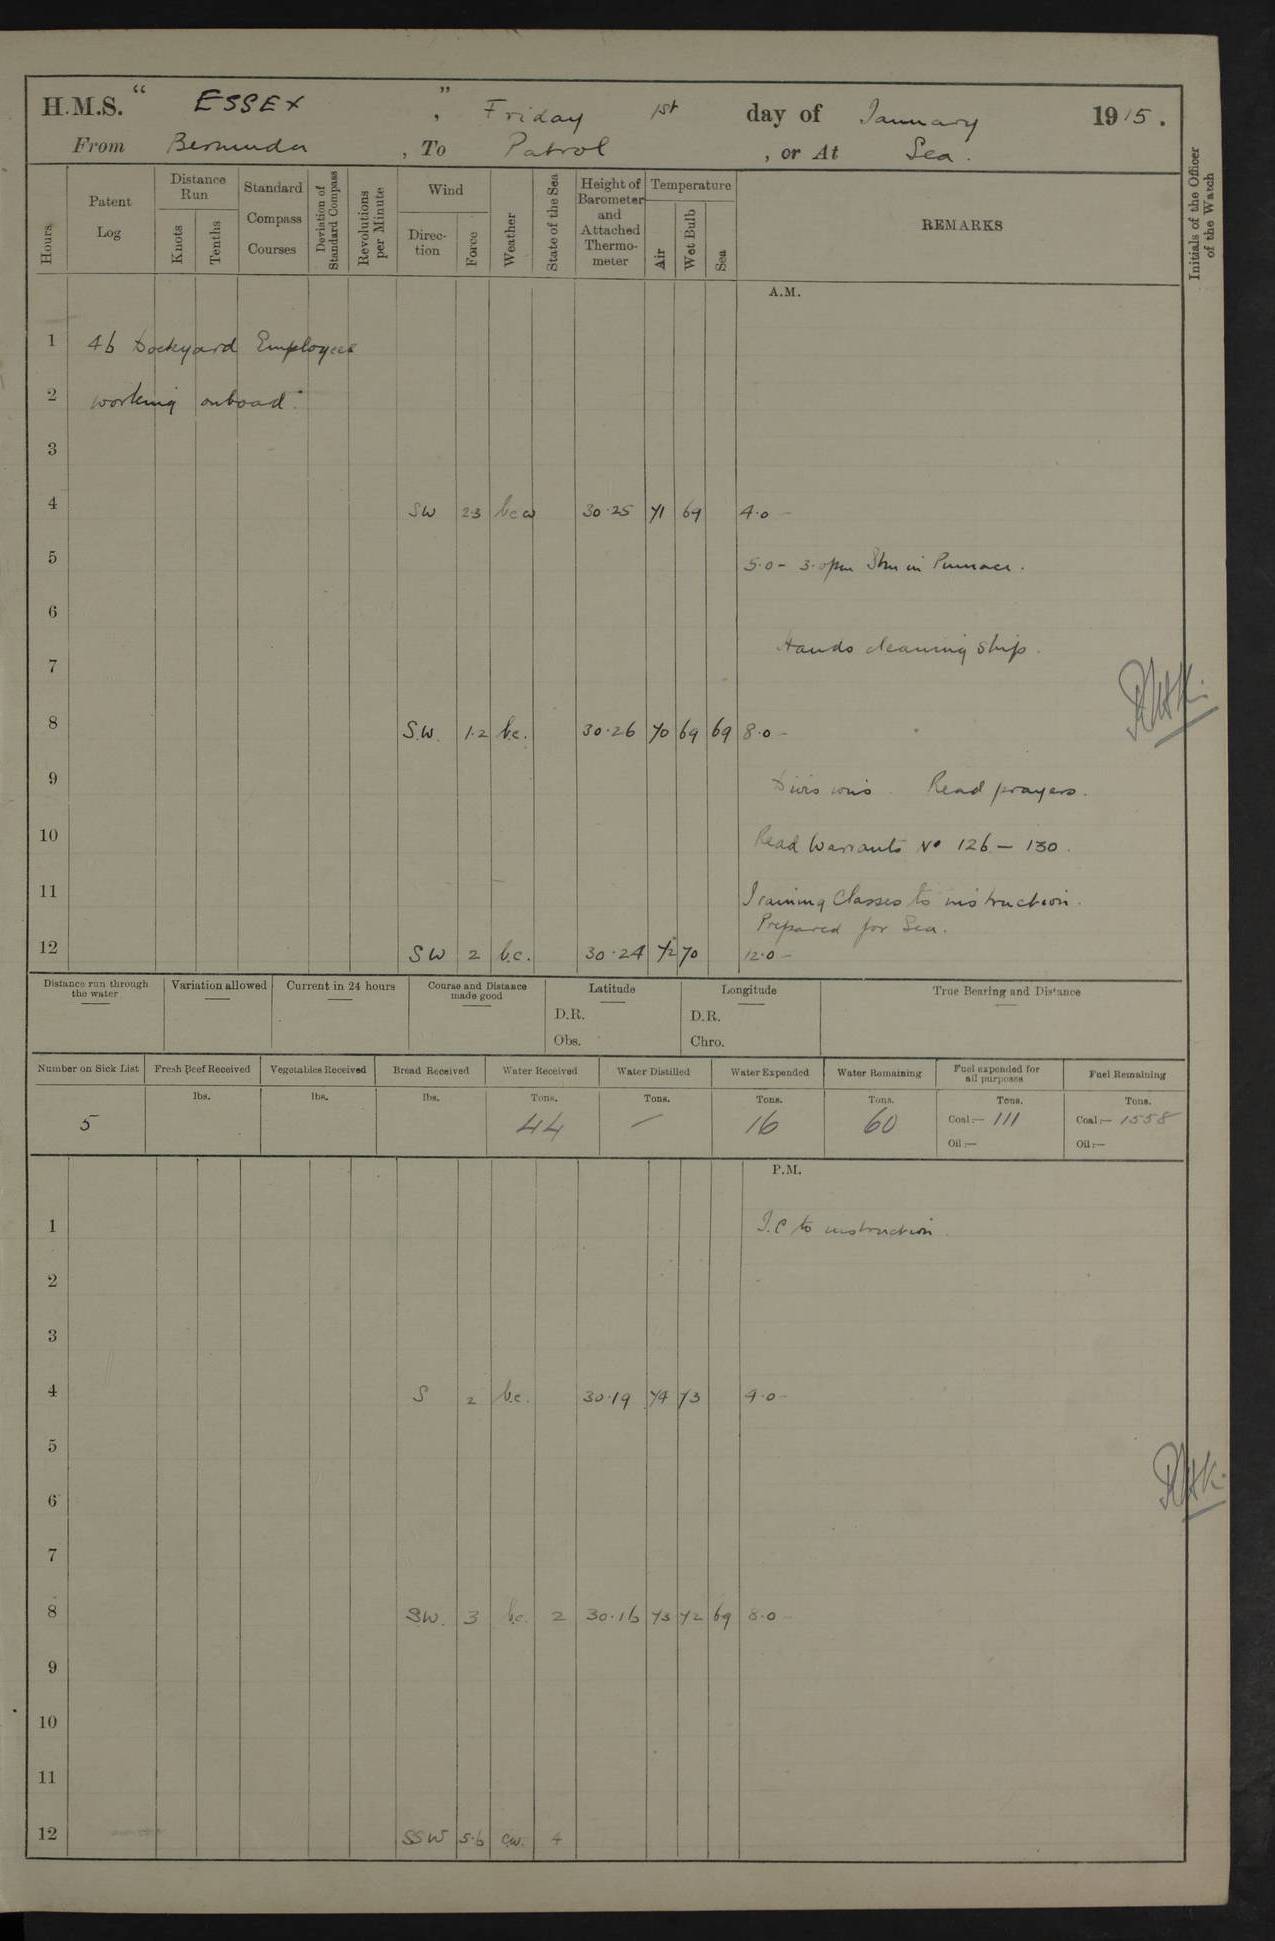 H.M.S. “ ESSEX ” , Friday 1st day of January 1915.
From Bermuda , To Patrol , or At Sea.
Hours
Patent Log
Distance Run
Knots
Tenths
Standard Compass Courses
Deviation of Standard Compass
Revolutions per Minute
Wind
Direc-tion
Force
Weather
State of the Sea
Height of Barometer and Attached Thermo-meter
Temperature
Air
Wet Bulb
Sea
REMARKS
Initials of the Officer of the Watch
A.M.
1 46 Dockyard Employees
2 working onboard.
3
4 SW 2.3 bcw 30.25 71 69 4.0 -
5 5.0 - 3.0pm Stm in Pinnace.
6
Hands cleaning ship.
7
8 S.W. 1.2 bc. 30.26 70 69 69 8.0 -
9 Divisions. Read prayers.
10 Read Warrants No 126 - 130.
11 Training Classes to instruction.
Prepared for Sea.
12 SW 2 b.c. 30.24 72 70 12.0 -
Distance run through the water
Variation allowed
Current in 24 hours
Course and Distance made good
Latitude
D.R.
Obs.
Longitude
D.R.
Chro.
True Bearing and Distance
Number on Sick List
Fresh Beef Received
Vegetables Received
Bread Received
Water Received
Water Distilled
Water Expended
Water Remaining
Fuel expended for all purposes
Fuel Remaining
lbs. lbs. lbs. Tons. Tons. Tons. Tons. Tons. Tons.
5 44 — 16 60 Coal:— 111 Coal:— 1558
Oil:— Oil:—
P.M.
1 T.C to instruction.
2
3
4 S 2 b.c. 30.19 74 73 4.0 -
5
6
7
8 SW. 3 bc. 2 30.16 73 72 69 8.0 -
9
10
11
12 SSW 5.6 c.w. 4